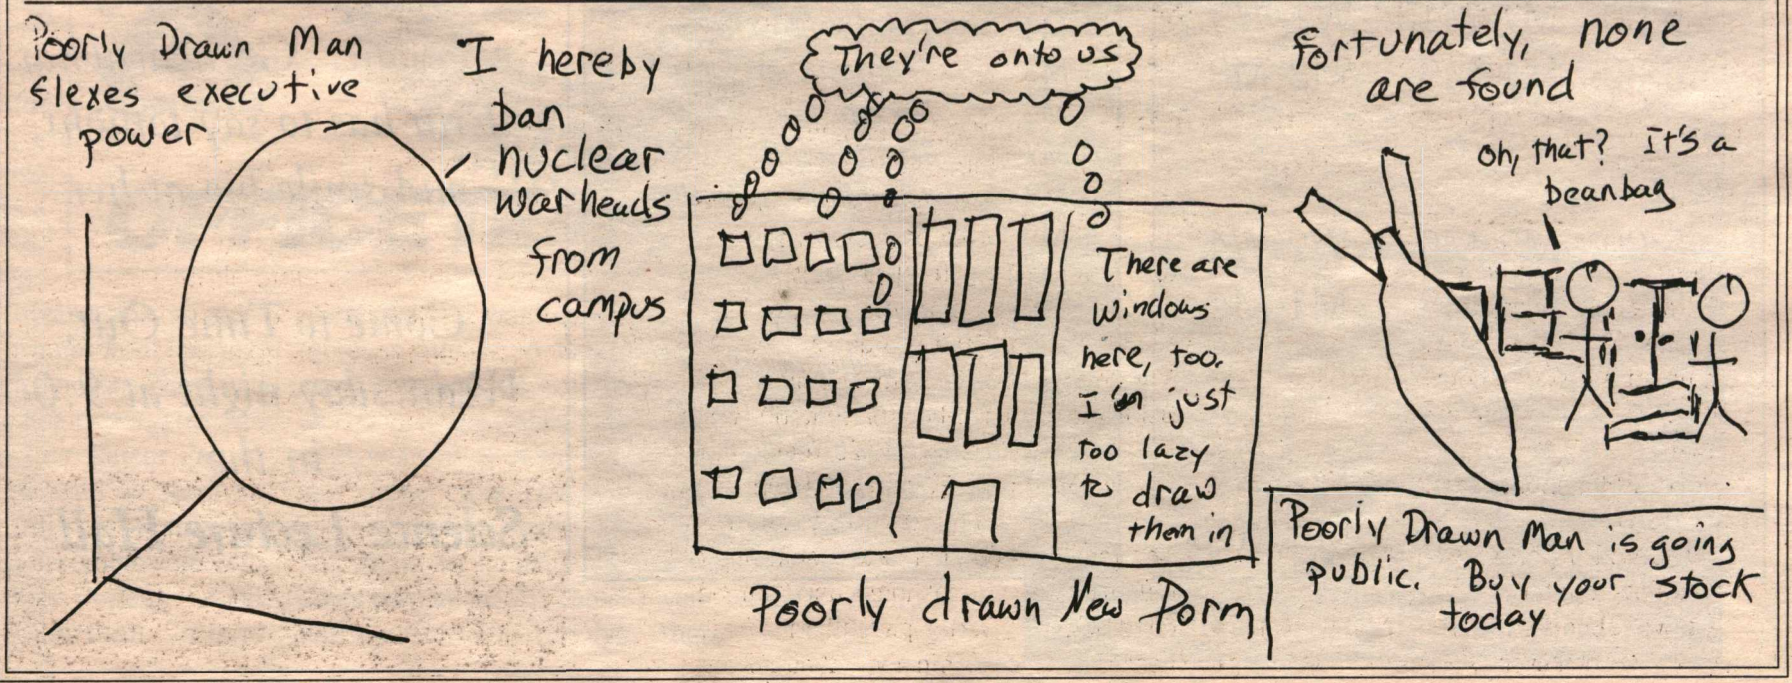 Poorly Drawn Man
flexes executive
power
I hereby
ban
nuclear
warheads
from
campus
They're onto us
There are
windows
here, too.
I'm just
too lazy
to draw
them in
Poorly drawn New Dorm
Fortunately, none
are found
Oh, that? It's a
beanbag
Poorly Drawn Man is going
public. Buy your stock
today